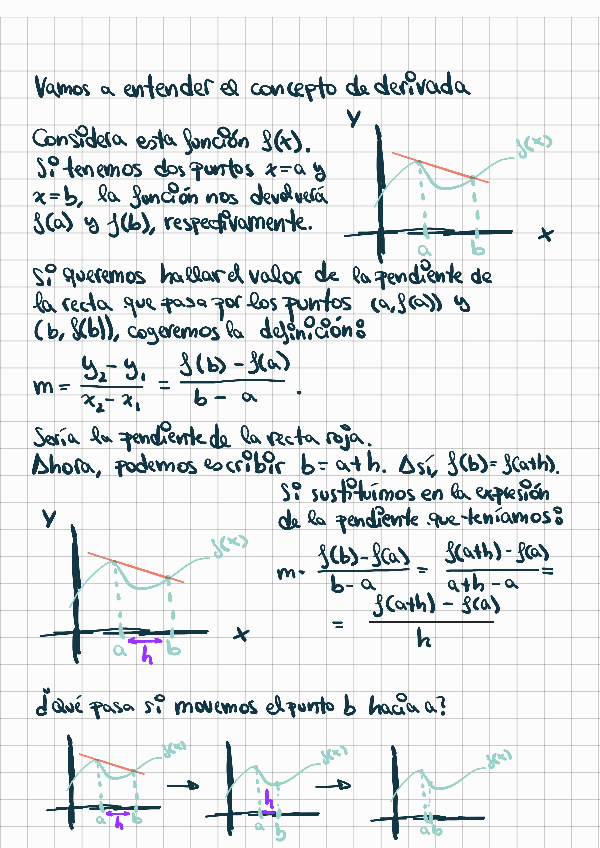 Vamos a entender el concepto de derivada
Considera esta función f(x).
Si tenemos dos puntos x=a y
x=b, la función nos devolverá
f(a) y f(b), respectivamente.
y
f(x)
a b
x
Si queremos hallar el valor de la pendiente de
la recta que pasa por los puntos (a, f(a)) y
(b, f(b)), cogeremos la definición:
m = (y₂ - y₁)/(x₂ - x₁) = (f(b) - f(a))/(b - a).
Sería la pendiente de la recta roja.
Ahora, podemos escribir b = a+h. Así, f(b)=f(a+h).
Si sustituímos en la expresión
de la pendiente que teníamos:
m = (f(b)-f(a))/(b-a) = (f(a+h)-f(a))/(a+h-a) =
= (f(a+h) - f(a))/h
y
f(x)
a b
h
x
¿Qué pasa si movemos el punto b hacia a?
f(x)
a b
h
f(x)
h
a b
f(x)
a b